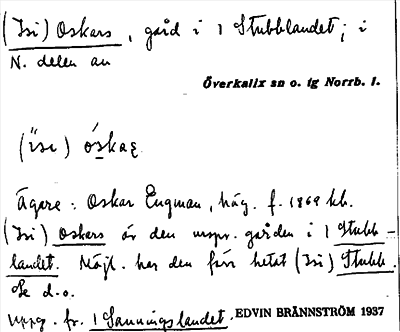 (Isi) Oskars, gård i 1 Stubblandet; i
N. delen av
Överkalix sn o. tg Norrb. l.
(ìse) óskaʂ
Ägare: Oskar Engman, häg. f. 1869 kb.
(Isi) Oskars är den urspr. gården i 1 Stubb-
landet. Möjl. har den förr hetat (Isi) Stubb.
Se d.o.
Uppg. fr. 1 Sanningslandet. EDVIN BRÄNNSTRÖM 1937